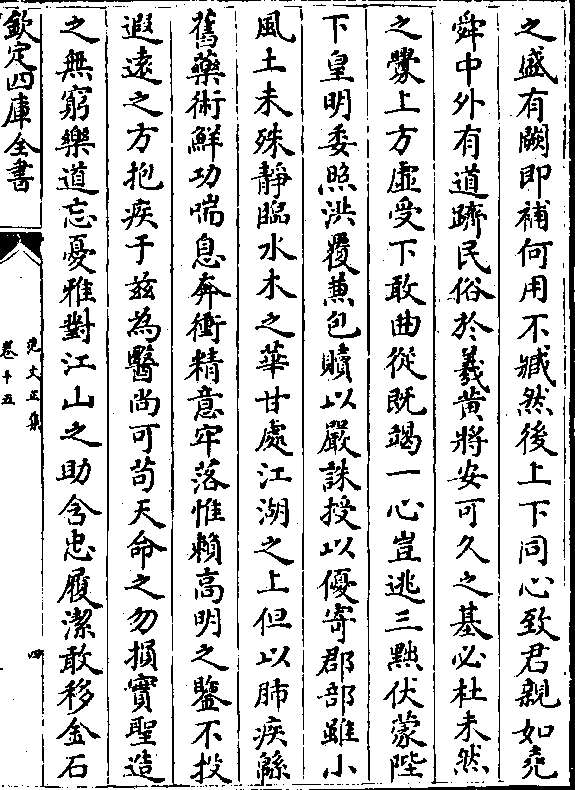 之盛有闕即補何用不臧然後上下同心致君親如堯
舜中外有道躋民俗於羲黄將安可久之基必杜未然
之釁上方虛受下敢曲從既竭一心豈逃三黜伏蒙陛
下皇明委照洪覆兼包贖以嚴誅授以優寄郡部雖小
風土未殊静臨水木之華甘處江湖之上但以肺疾緜
舊藥術鮮功喘息奔衝精意牢落惟賴高明之鑒不投
遐遠之方抱疾于兹為醫尚可苟天命之勿損實聖造
之無窮樂道忘憂雅對江山之助含忠履潔敢移金石
欽定四庫全書
范文正集
卷十五
四